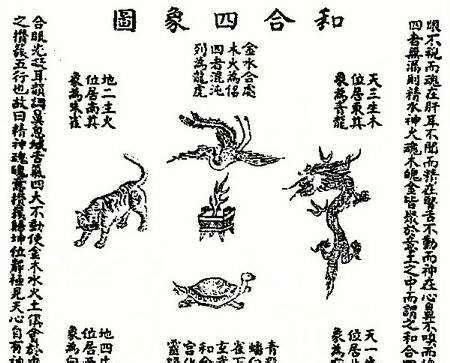 和合四象圖
眼不視而魂在肝耳不聞而精在腎舌不動而神在心鼻不嗅而
四者無漏則精水神火魂木魄金皆聚於意土之中而謂之和合
天三生木
位居東其
象為青龍
金水合處
木火為侶
四者混沌
列為龍虎
地二生火
位居南其
象為朱雀
天一
位居
象為
青龍
蟠
雀下
玄武
和合
宮化
靈
地四生
位居西
象為白
合眼光凝耳韻調鼻息緘舌氣四大不動使金木水火土俱會於
之攢簇五行也故曰精神魂魄意攢簇歸坤位靜極見天心自有神